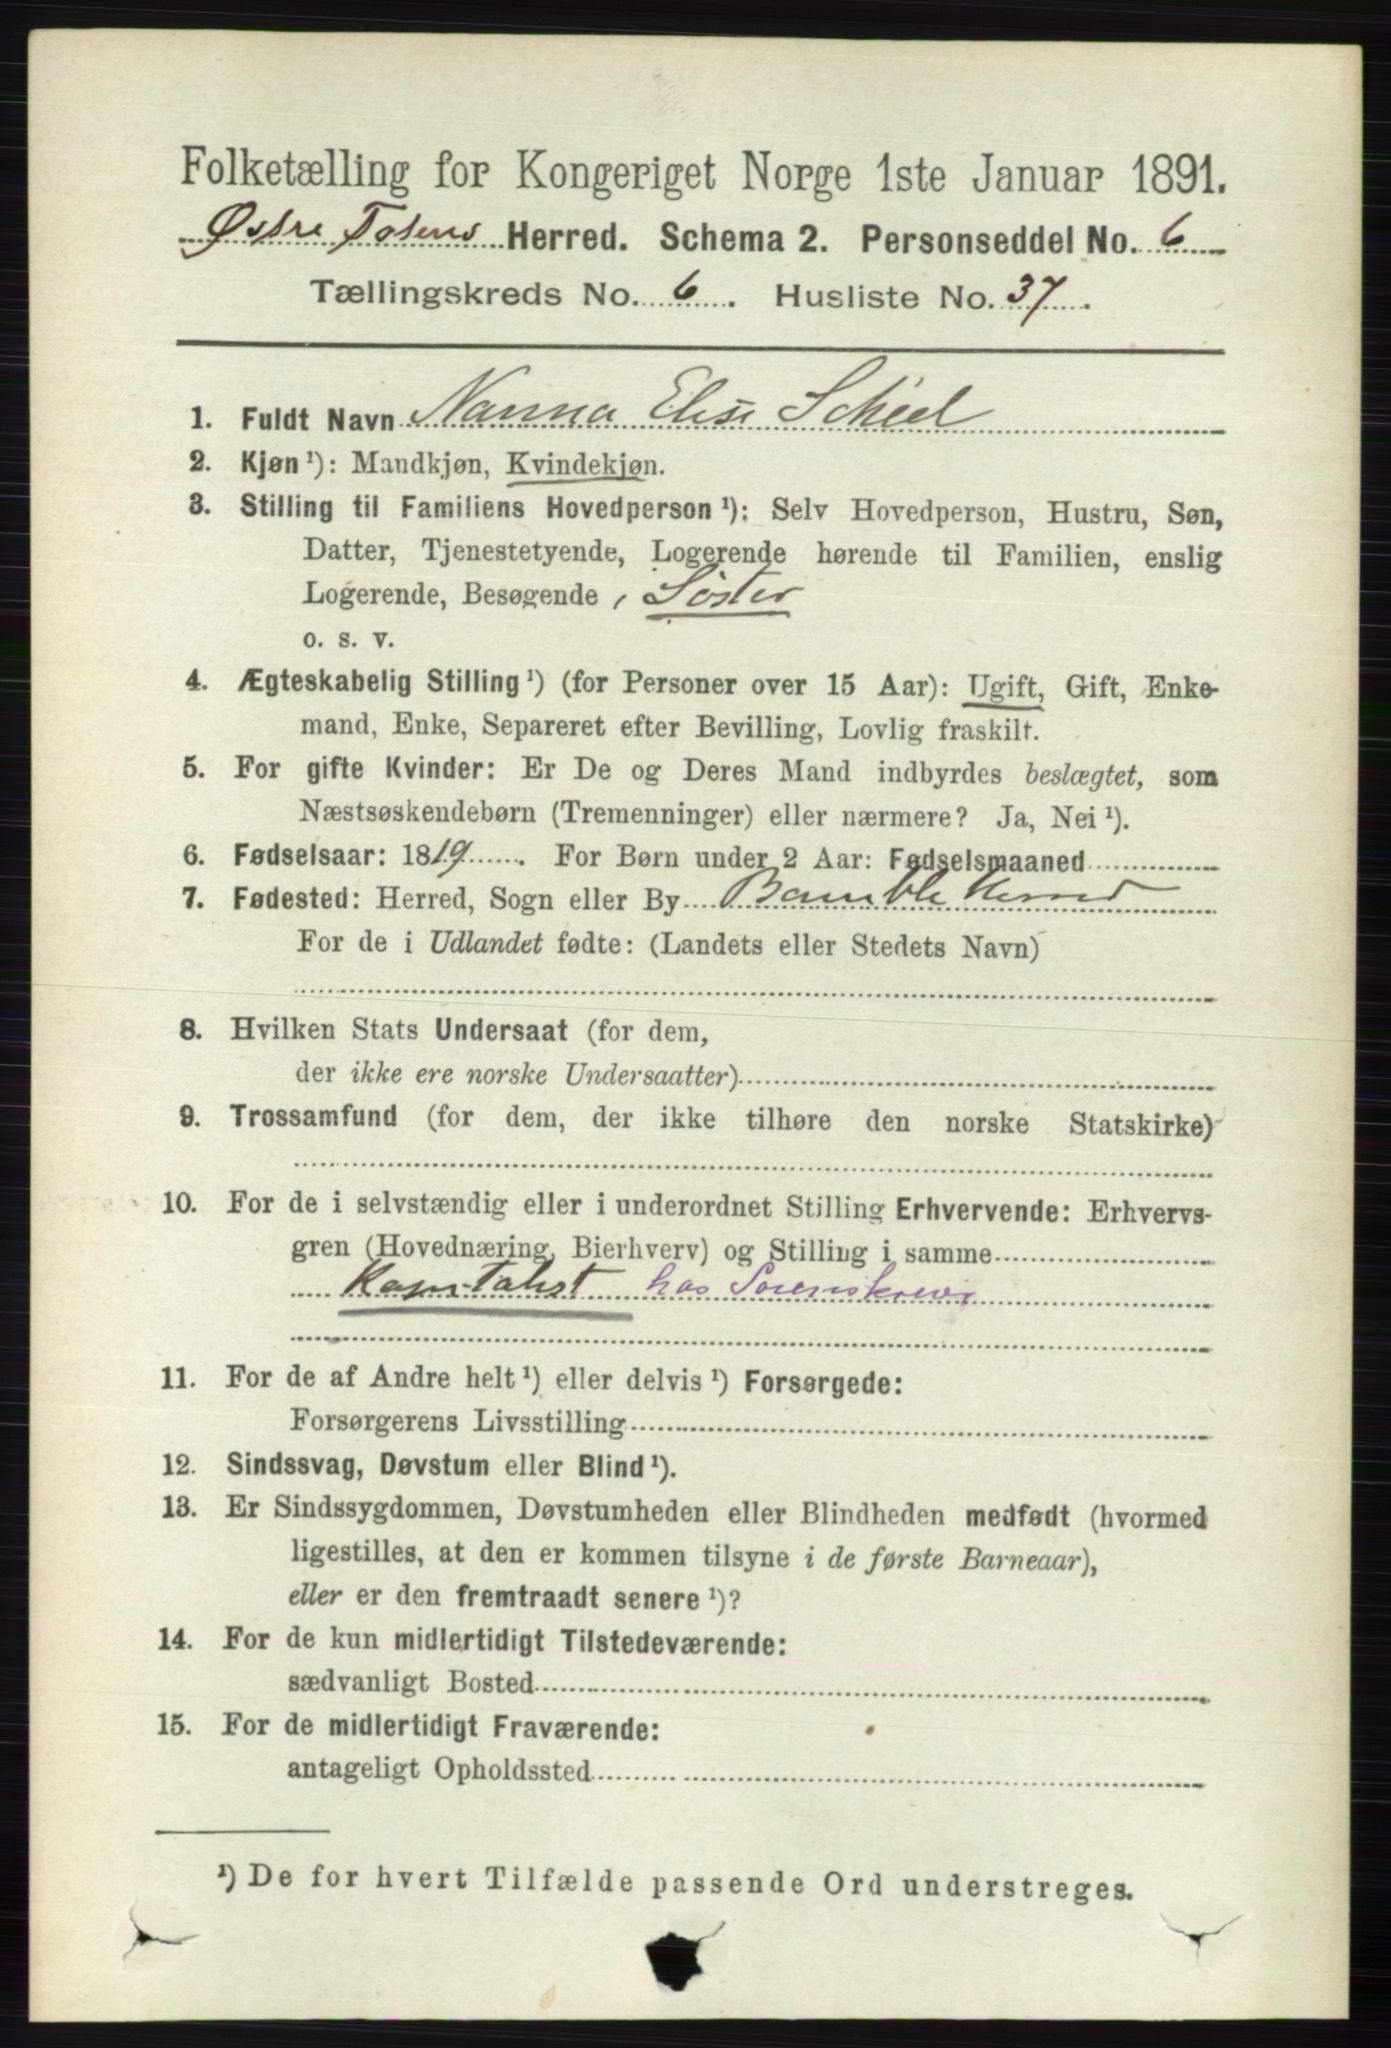 Folketælling for Kongeriget Norge 1ste Januar 1891.
Østre Totens Herred. Schema 2. Personseddel No. 6
Tællingskreds No. 6. Husliste No. 37.
1. Fuldt Navn Nanna Elise Scheel
2. Kjøn ¹): Mandkjøn, Kvindekjøn.
3. Stilling til Familiens Hovedperson ¹): Selv Hovedperson, Hustru, Søn,
Datter, Tjenestetyende, Logerende hørende til Familien, enslig
Logerende, Besøgende, Söster
o. s. v.
4. Ægteskabelig Stilling ¹) (for Personer over 15 Aar): Ugift, Gift, Enke-
mand, Enke, Separeret efter Bevilling, Lovlig fraskilt.
5. For gifte Kvinder: Er De og Deres Mand indbyrdes beslægtet, som
Næstsøskendebørn (Tremenninger) eller nærmere? Ja, Nei ¹).
6. Fødselsaar: 1819. For Børn under 2 Aar: Fødselsmaaned
7. Fødested: Herred, Sogn eller By Bamble Herred
For de i Udlandet fødte: (Landets eller Stedets Navn)
8. Hvilken Stats Undersaat (for dem,
der ikke ere norske Undersaatter)
9. Trossamfund (for dem, der ikke tilhøre den norske Statskirke)
10. For de i selvstændig eller i underordnet Stilling Erhvervende: Erhvervs-
gren (Hovednæring, Bierhverv) og Stilling i samme
hos
11. For de af Andre helt ¹) eller delvis ¹) Forsørgede:
Forsørgerens Livsstilling
12. Sindssvag, Døvstum eller Blind ¹).
13. Er Sindssygdommen, Døvstumheden eller Blindheden medfødt (hvormed
ligestilles, at den er kommen tilsyne i de første Barneaar),
eller er den fremtraadt senere ¹)?
14. For de kun midlertidigt Tilstedeværende:
sædvanligt Bosted
15. For de midlertidigt Fraværende:
antageligt Opholdssted
¹) De for hvert Tilfælde passende Ord understreges.